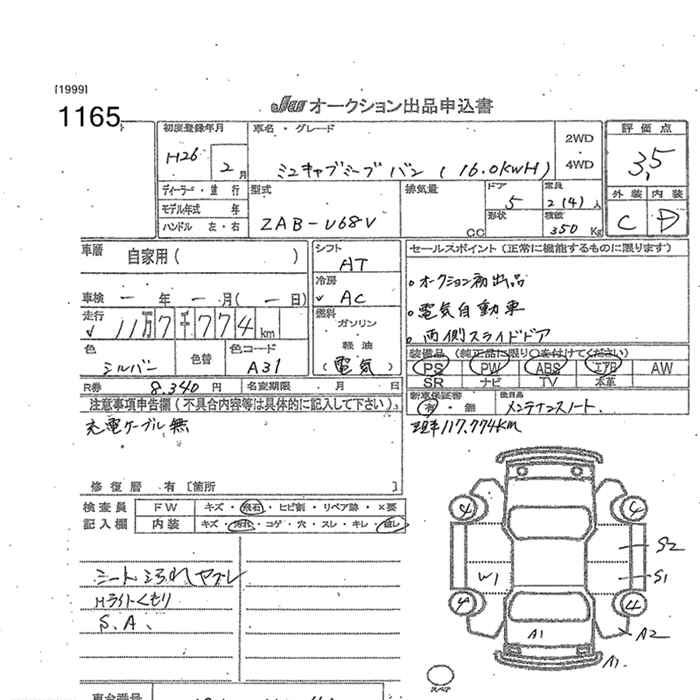 [1999]
1165
JU オークション出品申込書
初度登録年月
H26 2月
車名・グレード
ミニキャブミーブ バン (16.0kwH)
2WD
4WD
評価点
3.5
外装 内装
C D
ディーラー・並行
モデル年式 年
ハンドル 左・右
型式
ZAB-U68V
排気量
CC
ドア
5
形状
定員
2(4)人
積載
350 Kg
車歴 自家用( )
車検 ー年ー月(ー日)
走行 11万7千774km
色
シルバー
色替
色コード
A31
シフト
AT
冷房
AC
燃料
ガソリン
軽油
(電気)
セールスポイント(正常に機能するものに限ります)
。オークション初出品
。電気自動車
。両側スライドドア
装備品(純正品に限り○を付けてください)
PS PW ABS エアB AW
SR ナビ TV 本革
R券 8.340円 名変期限 月 日
新車保証書
有・無
後日品
メンテナンスノート.
注意事項申告欄(不具合内容等は具体的に記入して下さい)
充電ケーブル無
修復歴 有〔箇所 〕
117.774KM
検査員
記入欄
FW キズ・飛石・ヒビ割・リペア跡・×要
内装 キズ・汚れ・コゲ・穴・スレ・キレ・破レ
シート汚れヤブレ
Hライトくもり
S.A.
4 4
S2
W1 S1
4 4
A1 A2
A1
スペア
車台番号